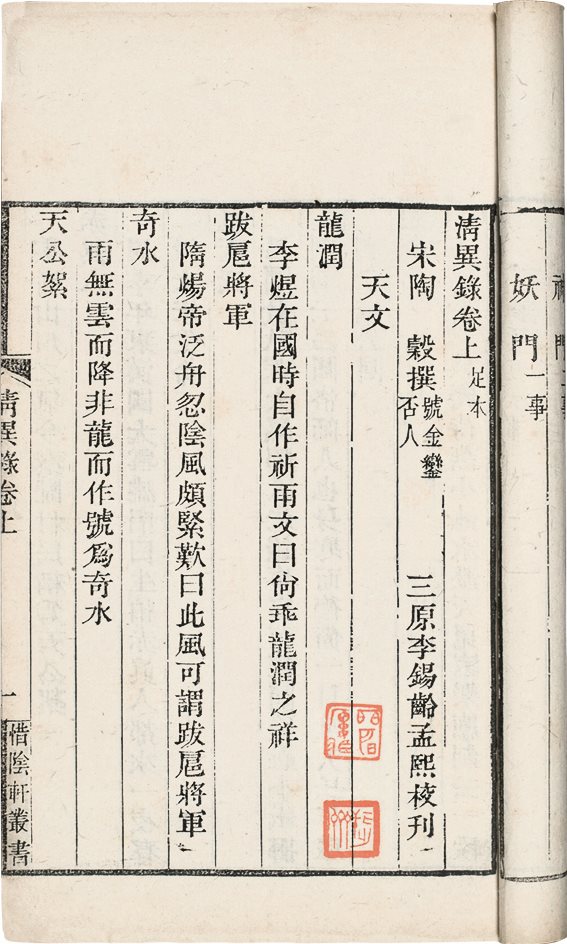 妖門一事
清異錄卷上足本
宋陶穀撰號金鑾否人 三原李錫齡孟熙校刊
天文
龍潤
李煜在國時自作祈雨文曰尙乖龍潤之祥
跋扈將軍
隋煬帝泛舟忽陰風頗緊歎曰此風可謂跋扈將軍
奇水
雨無雲而降非龍而作號爲奇水
天公絮
清異錄卷上
一
惜陰軒叢書